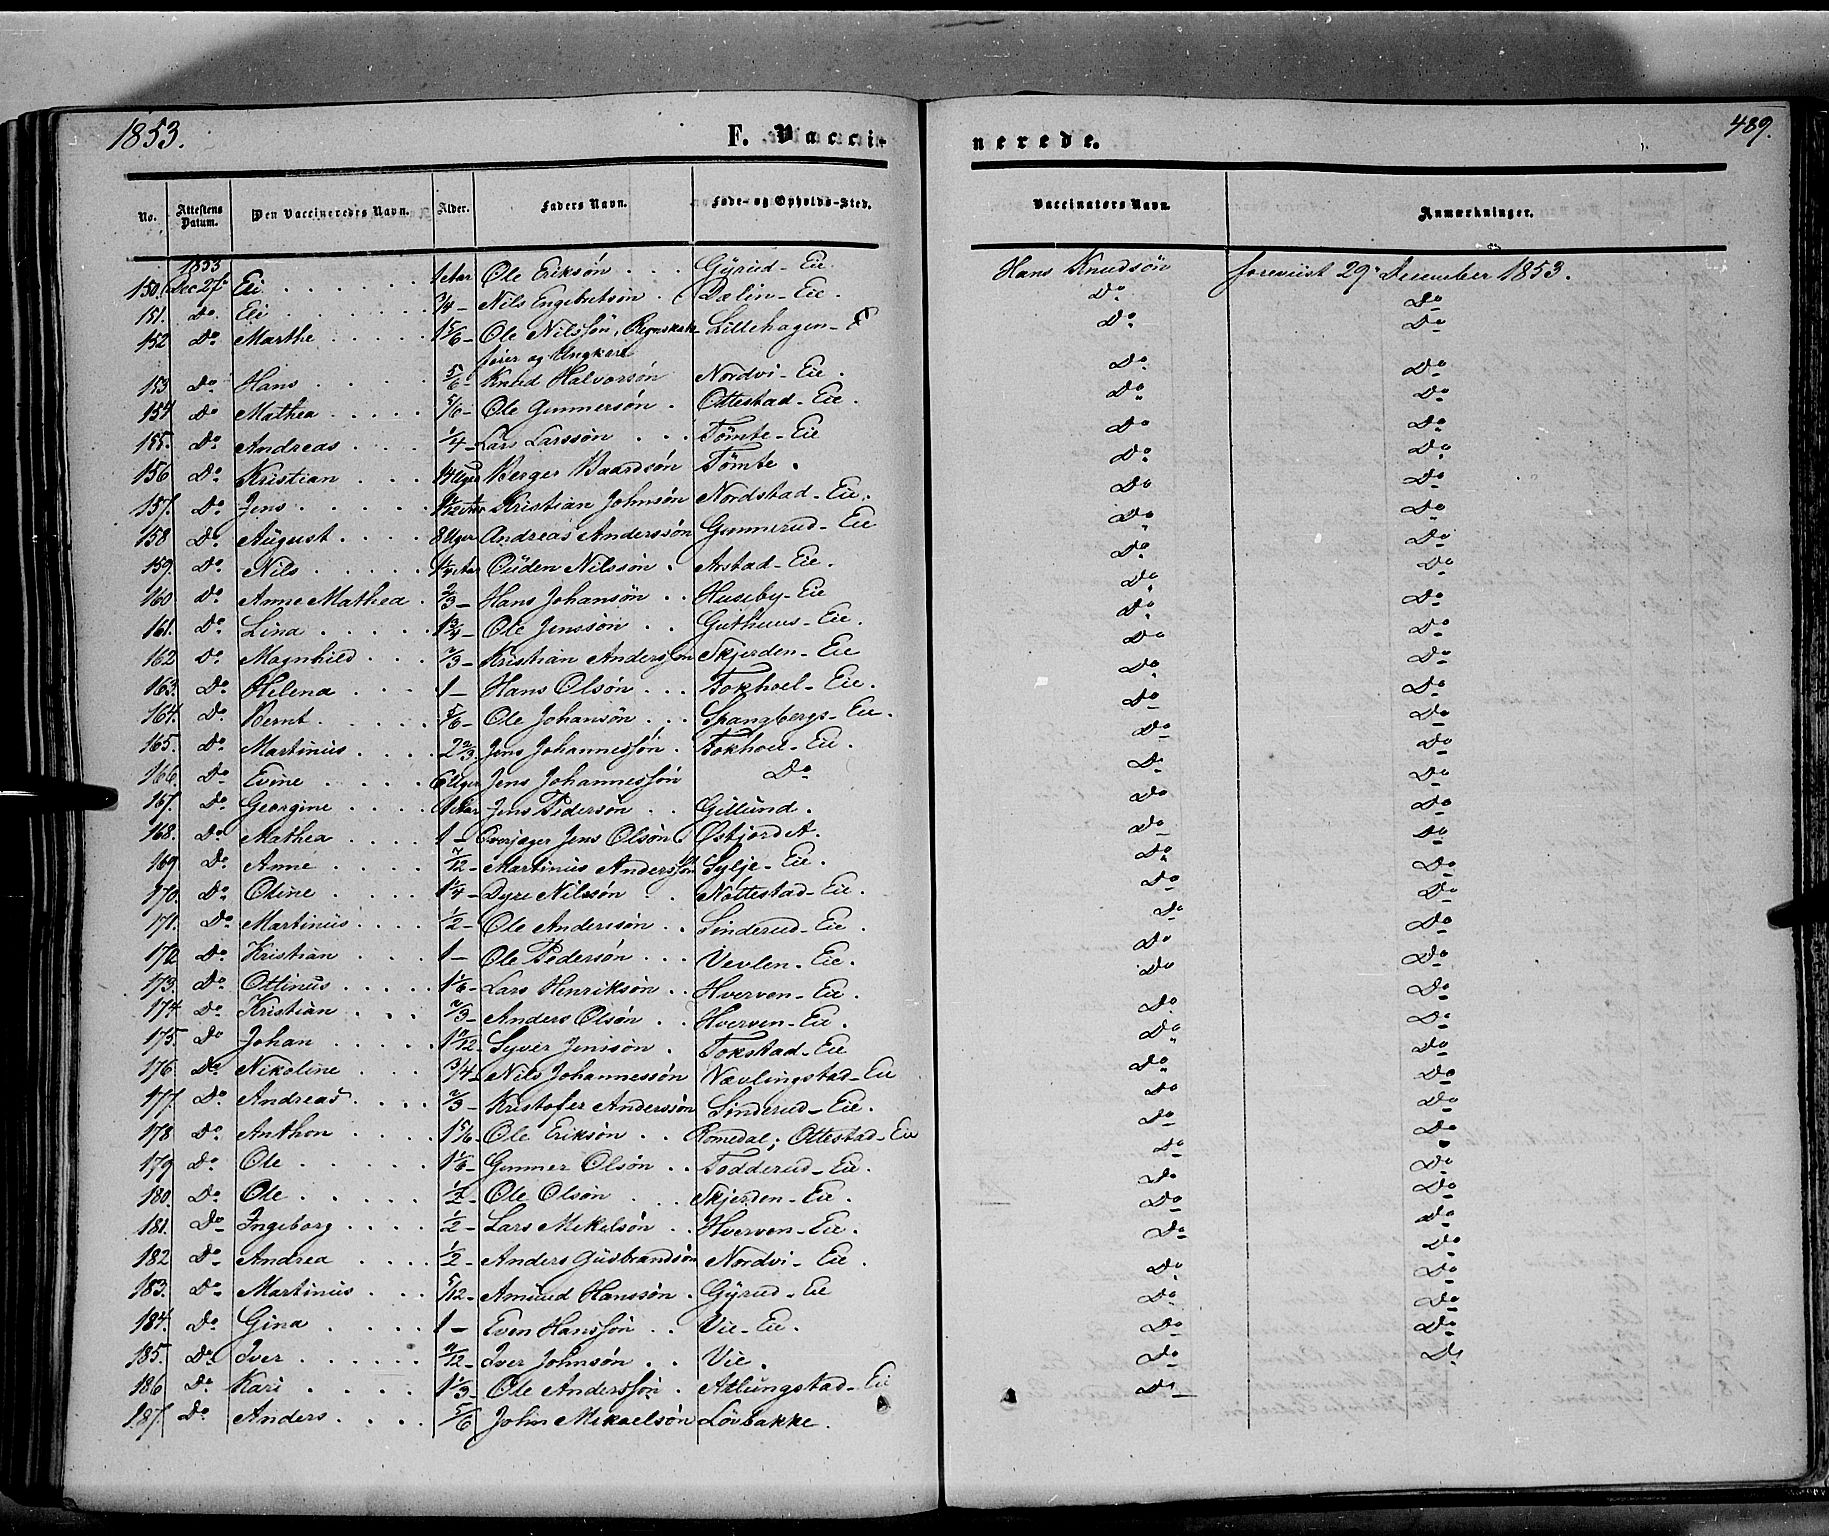 1853.
F. Vacci-
nerede.
489.
No. Attestens Datum. Den Vaccineredes Navn. Alder. Faders Navn. Føde- og Opholds-Sted. Vaccinators Navn. Anmærkninger.
1853
150. Dec 27de Eli . . . 1 Aar Ole Eriksøn . . . Gÿrud-Eie. Hans Knudsøn foreviist 29. December 1853.
151. Do Eli . . . 3/4 - Nils Engebretsøn . Dalin-Eie. Do Do
152 Do Marthe . . . 1 5/6 - Ole Nilssøn, Lillehagen-E Do Do
feier og Ungkarl
153. Do Hans . . . 5/6 - Knud Halvorsøn Nordvi-Eie. Do Do
154 Do Mathea . . . 5/6 - Ole Gunnersøn . Ottestad-Eie. Do Do
155. Do Andreas . . . 1/4 - Lars Larssøn . . . Tømte-Eie Do Do
156 Do Kristian . . . 14 Uger Berger Baardsøn Tømte. Do Do
157. Do Jens . . . Aar Kristian Johnsøn Nordstad-Eie. Do Do
158 Do August . . . 8 Uger Andreas Anderssøn Gunnerud-Eie Do Do
159. Do Nils . . . Aar Ouden Nilssøn . Arstad-Eie. Do Do
160 Do Anne Mathea . 2/3 - Hans Johansøn . . Huseby-Eie Do Do
161. Do Lina . . . 1 3/4 - Ole Jenssøn . . Guthuus-Eie. Do Do
162 Do Magnhild . . . 2/3 - Kristian Anderssøn Skjerden-Eie Do Do
163. Do Helena . . . 1 - Hans Olsøn . . . Fokhoel-Eie. Do Do
164. Do Bernt . . . 5/6 - Ole Johansøn . . . Spangbergs-Eie. Do Do
165. Do Martinus . . . 2 2/3 Jens Johannessøn . Fokhoel-Eie. Do Do
166 Do Evine . . . 6 Uger Jens Johannessøn Do Do Do
167. Do Georgine . . . 1 Aar Jens Pedersøn . . Gillund. Do Do
168. Do Mathea . . . 1 - Overjæger Jens Olsøn Østjordet. Do Do
169. Do Anne . . . 7/12 - Martinus Anderssøn Sylje-Eie. Do Do
170. Do Oline . . . 1 1/4 - Dyre Nilssøn . . Nøttestad-Eie. Do Do
171. Do Martinus . . . 1/2 - Ole Anderssøn . . Sinderud-Eie. Do Do
172 Do Kristian . . . 1 - Ole Pedersøn . . . Vevlen-Eie. Do Do
173. Do Ottinus . . . 1 1/6 - Lars Henriksøn . . Hverven-Eie. Do Do
174 Do Kristian . . . 2/3 - Anders Olsøn . . Hverven-Eie. Do Do
175. Do Johan . . . Syver Jenssøn . Tokstad-Eie Do Do
176. Do Nikoline . . . 3/4 - Nils Johannessøn Nævlingstad-Eie Do Do
177. Do Andreas . . . 2/3 - Kristofer Anderssøn Sinderud-Eie. Do Do
178 Do Anthon . . . 1 5/6 - Ole Eriksøn . . Romedal; Ottestad-Eie Do Do
179 Do Ole . . . 1 1/6 - Gunner Olsøn . . Todderud-Eie. Do Do
180. Do Ole . . . 1/2 - Ole Olsøn . . . Skjerden-Eie. Do Do
181. Do Ingeborg . . . 1/2 - Lars Mikelsøn . . Hverven-Eie. Do Do
182 Do Andrea . . . 1/2 - Anders Gudbrandsøn Nordvi-Eie. Do Do
183. Do Martinus . . . 5/12 - Amund Hanssøn . Gÿrud-Eie Do Do
184. Do Gina . . . 1 - Even Hanssøn . . Vie-Eie. Do Do
185. Do Iver . . . Iver Johnsøn . . Vie. Do Do
186 Do Kari . . . 1 1/3 - Ole Anderssøn . Atlungstad-Eie Do
187. Do Anders . . . 5/6 John Mikaelsøn Løvbakke.